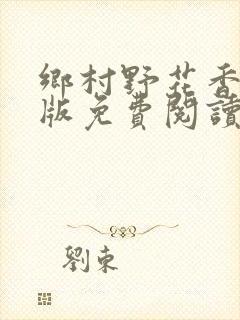 鄉村野花香
版免費閱讀
劉東